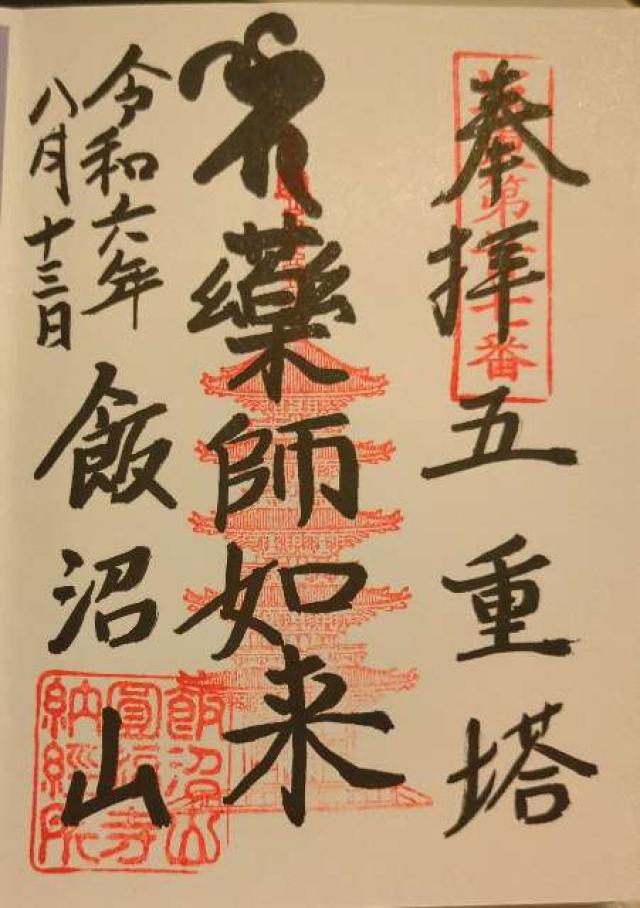 奉拝五重塔
藥師如来
令和六年
八月十三日
飯沼山
飯沼山
圓福寺
納經所